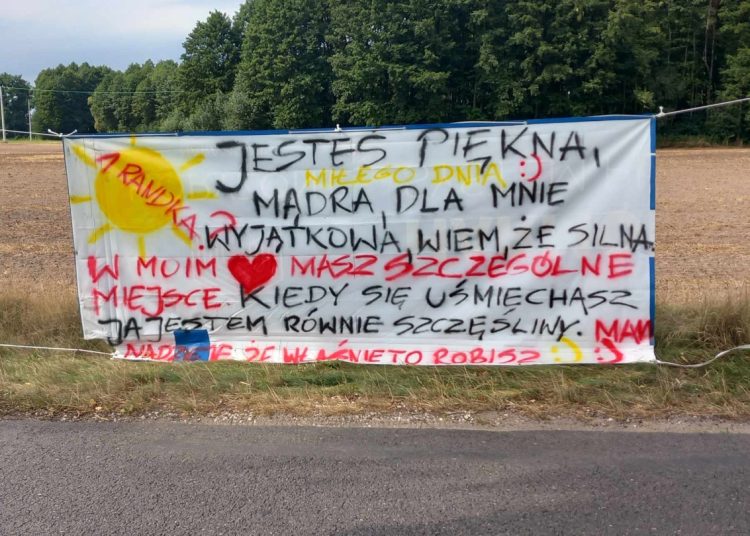 JESTEŚ PIĘKNA,
MIŁEGO DNIA :)
1 RANDKA..?
MĄDRA, DLA MNIE
WYJĄTKOWA, WIEM, ŻE SILNA.
W MOIM ❤ MASZ SZCZEGÓLNE
MIEJSCE. KIEDY SIĘ UŚMIECHASZ
JA JESTEM RÓWNIE SZCZĘŚLINY. MAM
NADZIEJĘ ŻE WŁAŚNIE TO ROBISZ :) :)